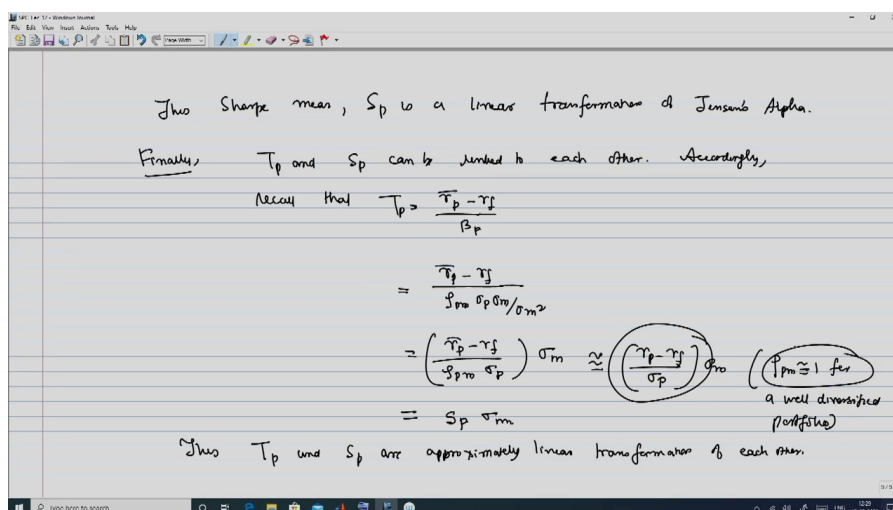 File Edit View Insert Actions Tools Help
Page Width
Thus Sharpe meas, Sp is a linear transformation of Jensen's Alpha.
Finally, Tp and Sp can be linked to each other. Accordingly,
recall that Tp = r̄p - rf / βp
= r̄p - rf / ρpm σp σm/σm²
= ( r̄p - rf / ρpm σp ) σm ≅ ( rp - rf / σp ) σm ( ρpm ≅ 1 for
a well diversified
portfolio)
= Sp σm
Thus Tp and Sp are approximately linear transformation of each other.
9/9
Type here to search
ENG
12:29